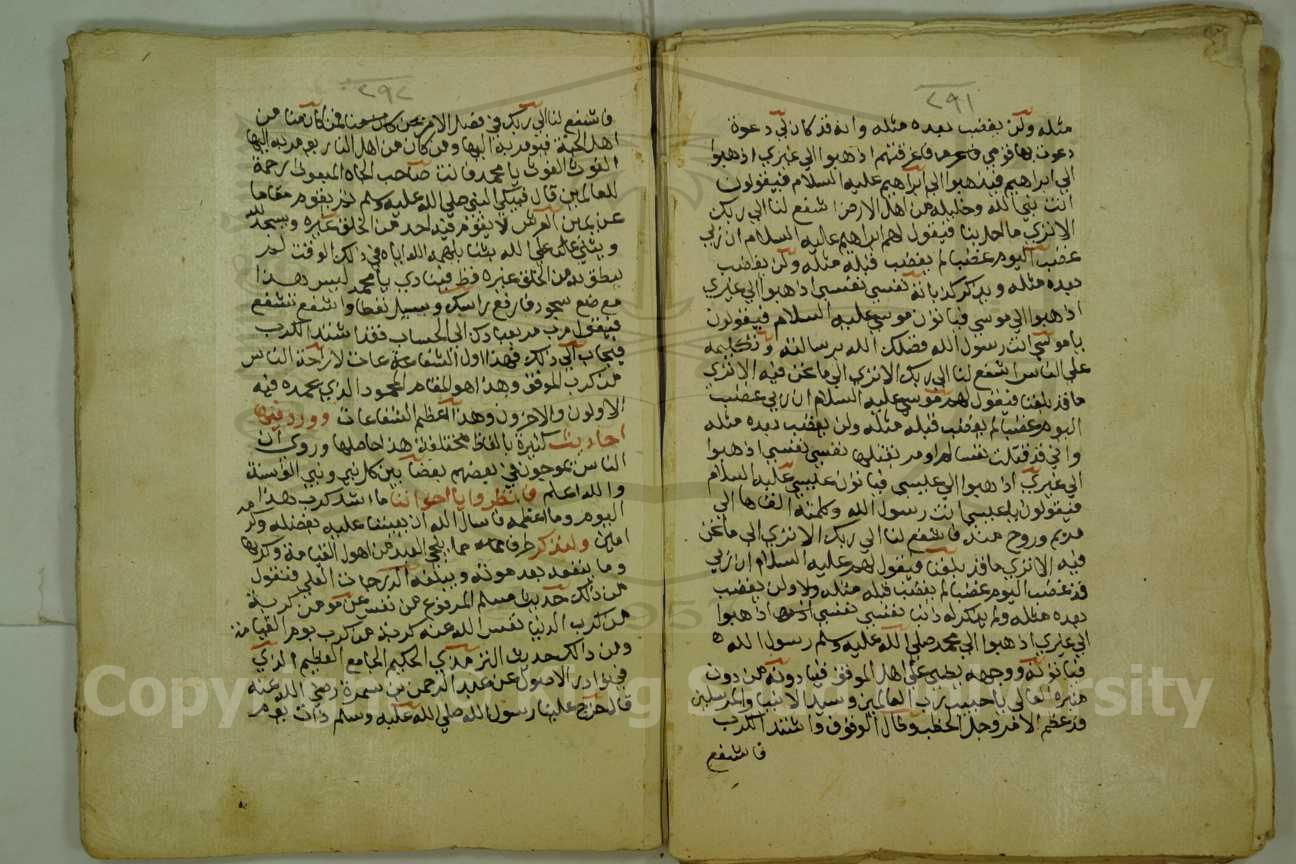 ٢٩١
مثله ولن يغضب بعده مثله وانه قد كان لي دعوة
دعوت بها قومي فاغرقتهم اذهبوا الي غيري اذهبوا
الي ابراهيم فيذهبوا الي ابراهيم عليه السلام فيقولون
انت نبي الله وخليله من اهل الارض اشفع لنا الي ربك
الا تري ما احل بنا فيقول لهم ابراهيم عليه السلام ان ربي
غضب اليوم غضبا لم يغضب قبله مثله ولن يغضب
بعده مثله ويذكر كذباته نفسي نفسي اذهبوا الي غيري
اذهبوا الي موسي فياتون موسي عليه السلام فيقولون
يا موسي انت رسول الله فضلك الله برسالته وتكليمه
علي الناس اشفع لنا الي ربك الا تري الي ما نحن فيه الا تري
ما قد بلغنا فيقول لهم موسي عليه السلام ان ربي غضب
اليوم غضبا لم يغضب قبله مثله ولن يغضب بعده مثله
واني قد قتلت نفسا لم اومر بقتلها نفسي نفسي اذهبوا
الي غيري اذهبوا الي عيسي فياتون عيسي عليه السلام
فيقولون يا عيسي انت رسول الله وكلمته القاها الي
مريم وروح منه فاشفع لنا الي ربك الا تري الي ما نحن
فيه الا تري ما قد بلغنا فيقول لهم عليه السلام ان ربي
قد غضب اليوم غضبا لم يغضب قبله مثله ولا ولن يغضب
بعده مثله ولم يذكر له ذنبا نفسي نفسي اذهبوا
الي غيري اذهبوا الي محمد صلي الله عليه وسلم رسول الله
فياتونه ووجهه يضيء علي اهل الموقف فينادونه من دون
منبره العالي يا حبيب رب العالمين وسيد الانبيا والمرسلين
قد عظم الامر وجل الخطب وطال الوقوف واشتد الكرب
فاشفع
٢٩٢
فاشفع لنا الي ربك في فصل الامر من كان منا فمن كان منا من
اهل الجنة فيومر به اليها ومن كان من اهل النار يومر به اليها
الغوث الغوث يا محمد فانت صاحب الجاه المبعوث رحمة
للعالمين قال فيبكي النبي صلي الله عليه وسلم ثم يقوم مقاما
عن يمين العرش لا يقوم فيه احد من الخلق غيره ويسجد لله
ويثني علي الله بثنا يلهمه الله اياه في ذلك الوقت لم
ينطق به من الخلق غيره قط فينادي يا محمد ليس هذا
موضع سجود فارفع راسك وسل تعطا واشفع تشفع
فيقول رب مر بعبادك الي الحساب فقد اشتد الكرب
فيجاب الي ذلك فهذا اول الشفاعة لاراحة الناس
من كرب الموقف وهذا هو المقام المحمود الذي يحمده فيه
الاولون والاخرون وهذا اعظم الشفاعات وورد فيها
احاديث كثيرة بالفاظ مختلفة هذا حاصلها وروي ان
الناس يموجون في بعضهم بعضا بين كل نبي ونبي الف سنة
والله اعلم فانظروا يا اخواننا ما اشد كرب هذا
اليوم وما اعظمه فاسال الله ان يعيننا عليه بفضله وكرمه
امين ولنذكر طرفا مما ينجي العبد من اهول القيامة وكربها
وما ينفعه بعد موته ويبلغه الدرجات العلي فنقول
من ذلك حديث مسلم المرفوع من نفس عن مومن كربة
من كرب الدنيا نفس الله عنه كربة من كرب يوم القيامة
ومن ذالك حديث الترمذي الحكيم الجامع العظيم الذي
في نوادر الاصول عن عبد الرحمن بن سمرة رضي الله عنه
قال خرج علينا رسول الله صلي الله عليه وسلم ذات يوم
Copyright © King Saud University
1957